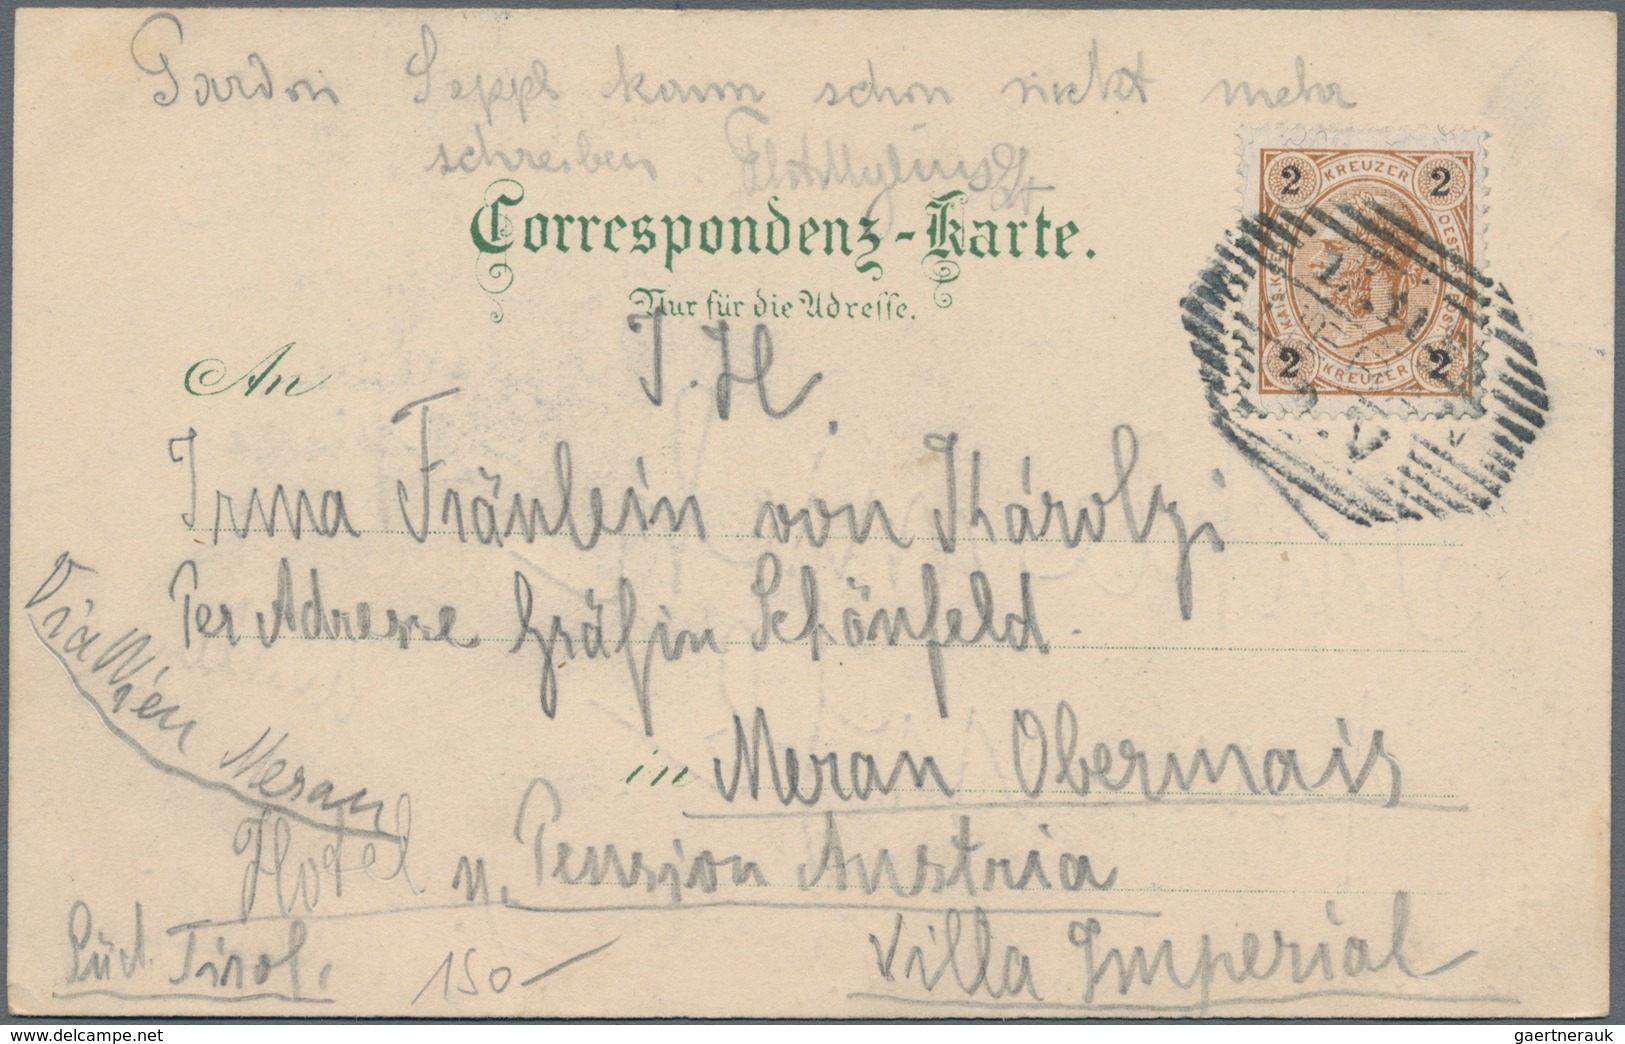 Pardon Seppl kann schon nicht mehr
schreiben.
Correspondenz-Karte.
Nur für die Adresse.
2 KREUZER 2
2 KREUZER 2
An
I. H.
Irma Fräulein von Károlyi
Per Adresse Gräfin Schönfeld.
Via Wien Meran
in Meran Obermais
Hotel u. Pension Austria
Villa Imperial
Süd. Tirol.
150-
gaertnerauk // delcampe.net